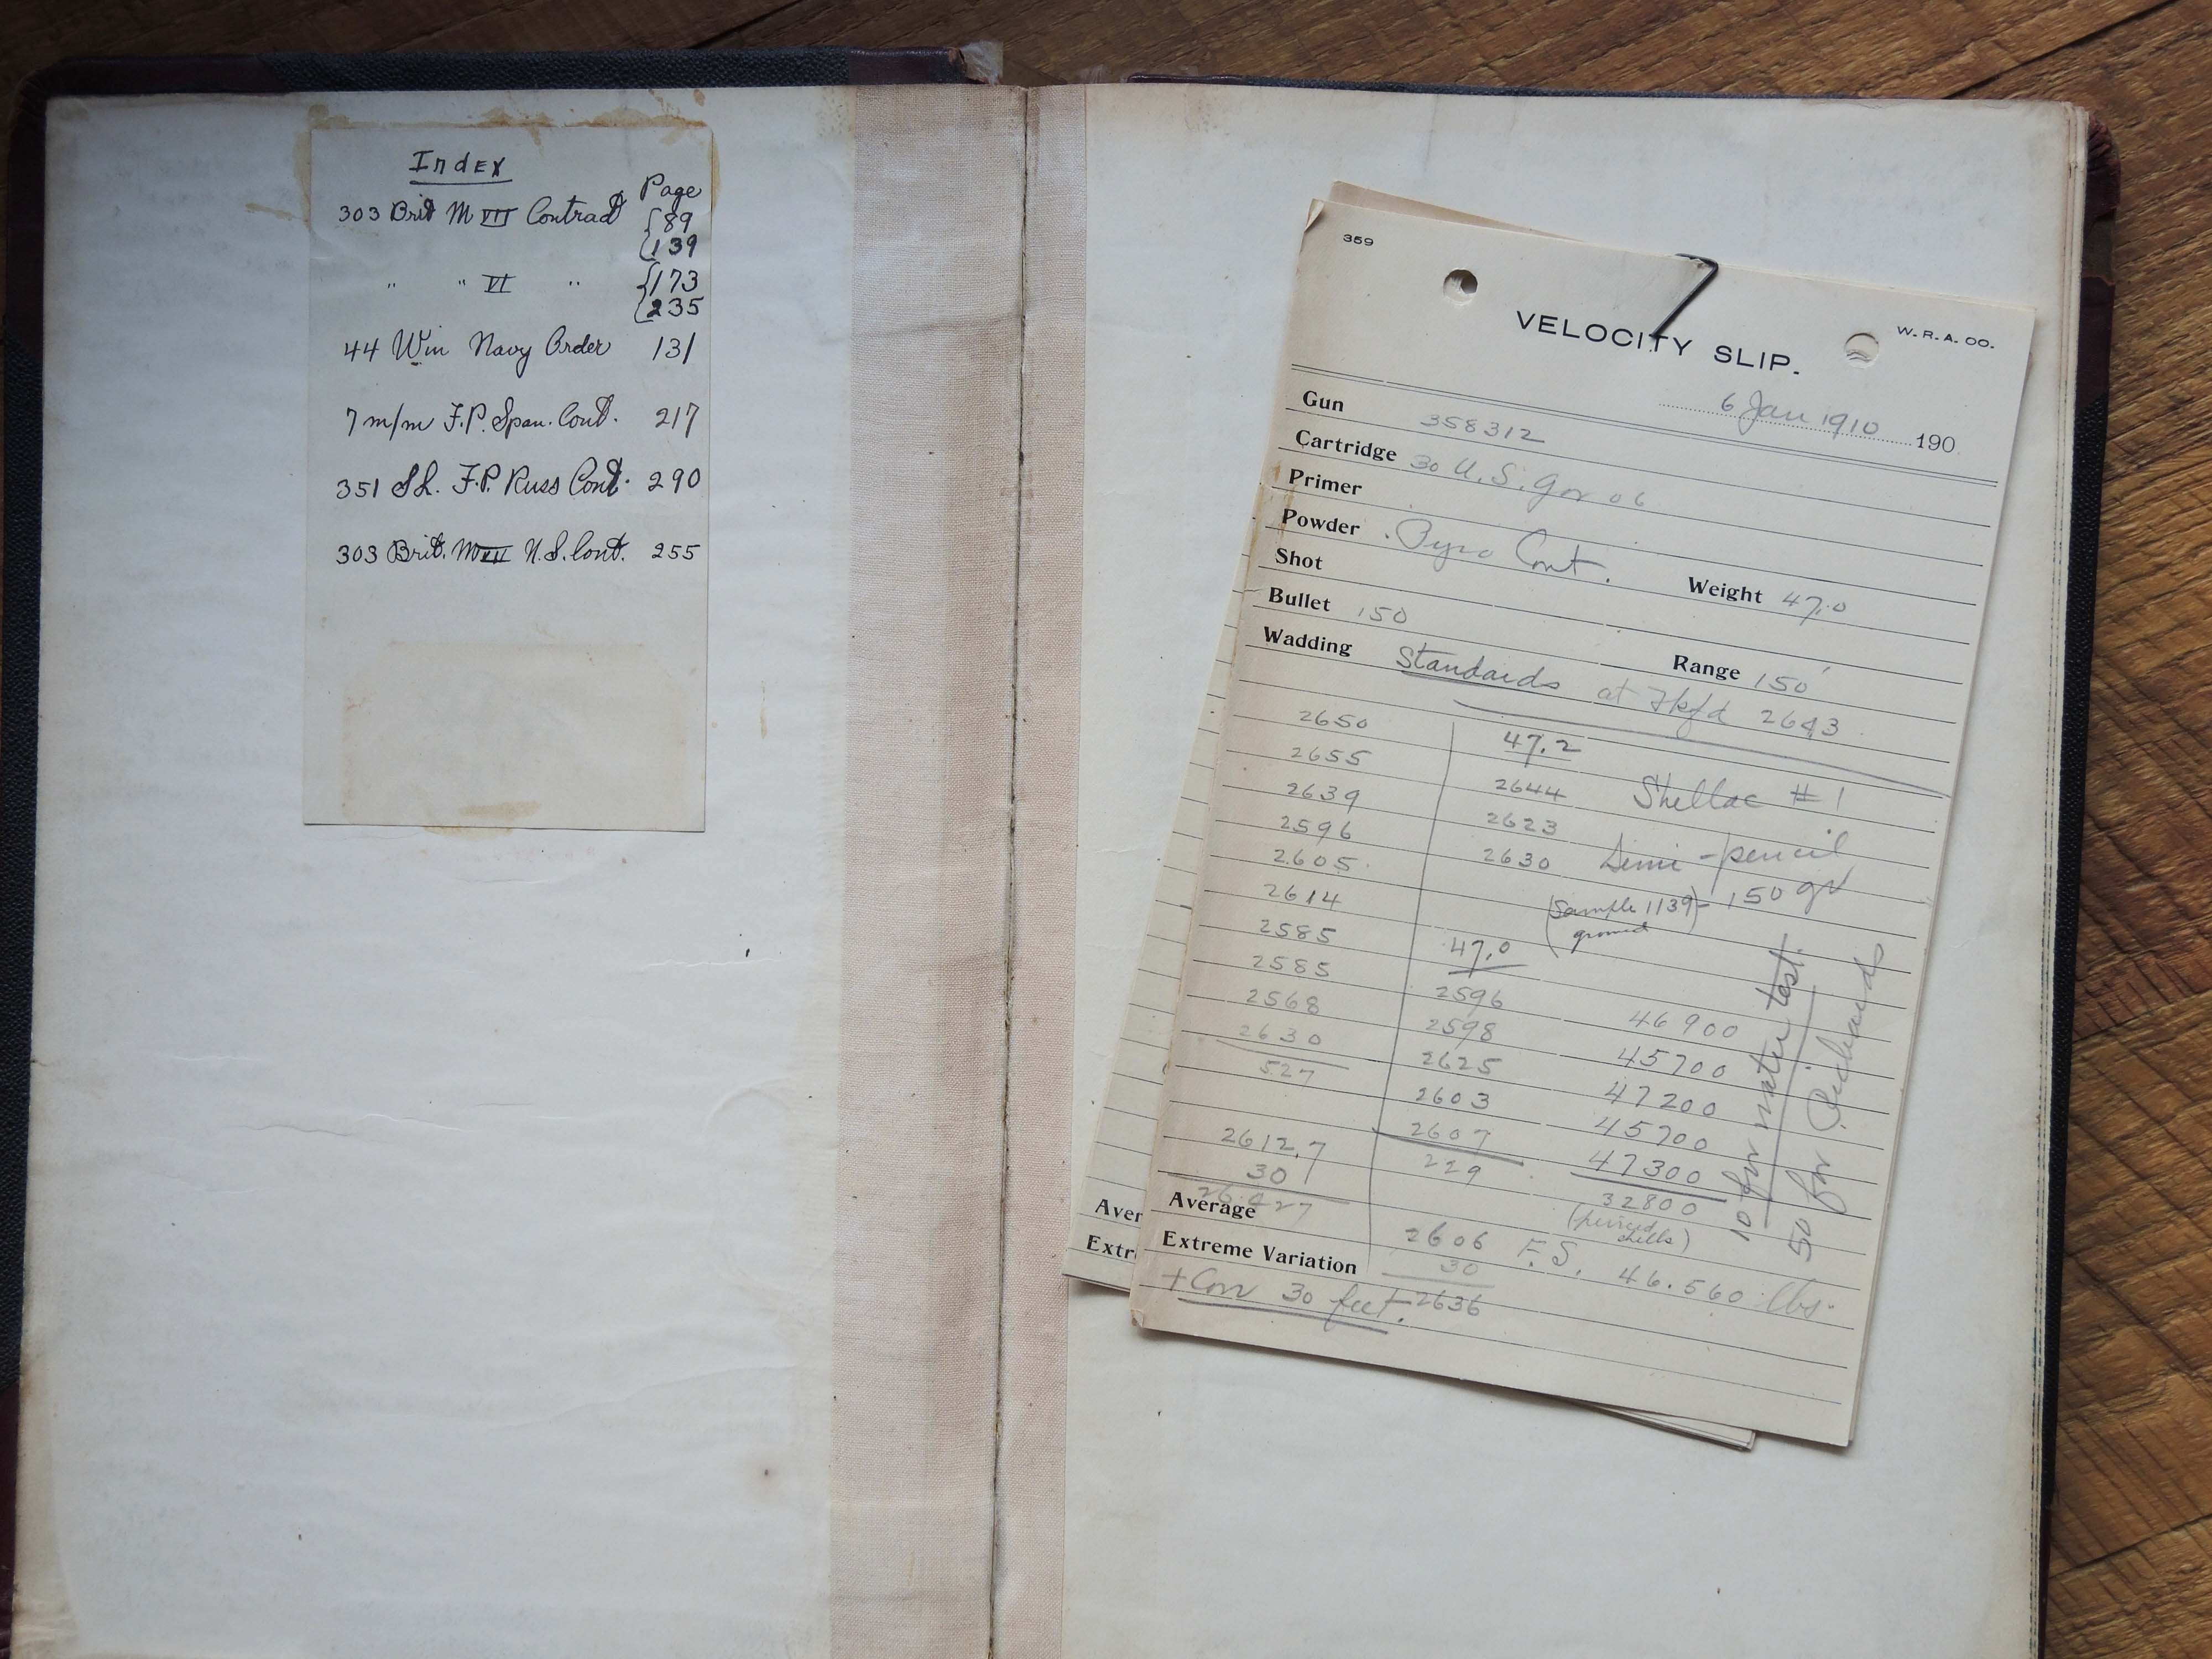 Index
Page
303 Brit M VII Contract {89
{139
" " VI " {173
{235
44 Win Navy Order 131
7 m/m F.P. Span. Cont. 217
351 S.L. F.P. Russ Cont. 290
303 Brit. M VII U.S. Cont. 255
359
W. R. A. CO.
VELOCITY SLIP.
6 Jan 1910 190
Gun 358312
Cartridge 30 U.S. Gov 06
Primer
Powder Pyro Cont. Weight 47.0
Shot
Bullet 150 Range 150'
Wadding Standards at Fkfd 2643
2650 47.2
2655 2644 Shellac #1
2639 2623
2596 2630 Semi-pencil
2605 (Sample 1139)- 150 gr
2614
2585 47.0
2585 2596 46900
2568 2598 45700
2630 2625 47200
527 2603 45700
2612.7 2607 47300
30 229 32800
Average 26427 (pierced shells)
2606 F.S. 46.560 lbs.
Extreme Variation 30
+ Corr 30 feet. 2636
10 for water test.
50 for Richards
Aver
Extr